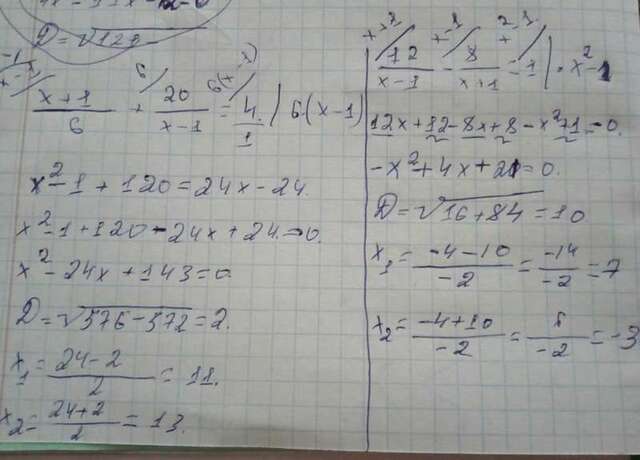 D = √121
x-1 6 6(x-1)
(x+1)/6 + 20/(x-1) = 4/1 | 6·(x-1)
x² - 1 + 120 = 24x - 24.
x² - 1 + 120 - 24x + 24 = 0.
x² - 24x + 143 = 0.
D = √576 - 572 = 2.
x₁ = (24 - 2)/2 = 11.
x₂ = (24 + 2)/2 = 13.
x+1 x-1 x²-1
12/(x-1) - 8/(x+1) = 1 | · x² - 1
12x + 12 - 8x + 8 - x² + 1 = 0.
-x² + 4x + 21 = 0.
D = √16 + 84 = 10
x₁ = (-4 - 10)/-2 = -14/-2 = 7
x₂ = (-4 + 10)/-2 = /-2 = -3